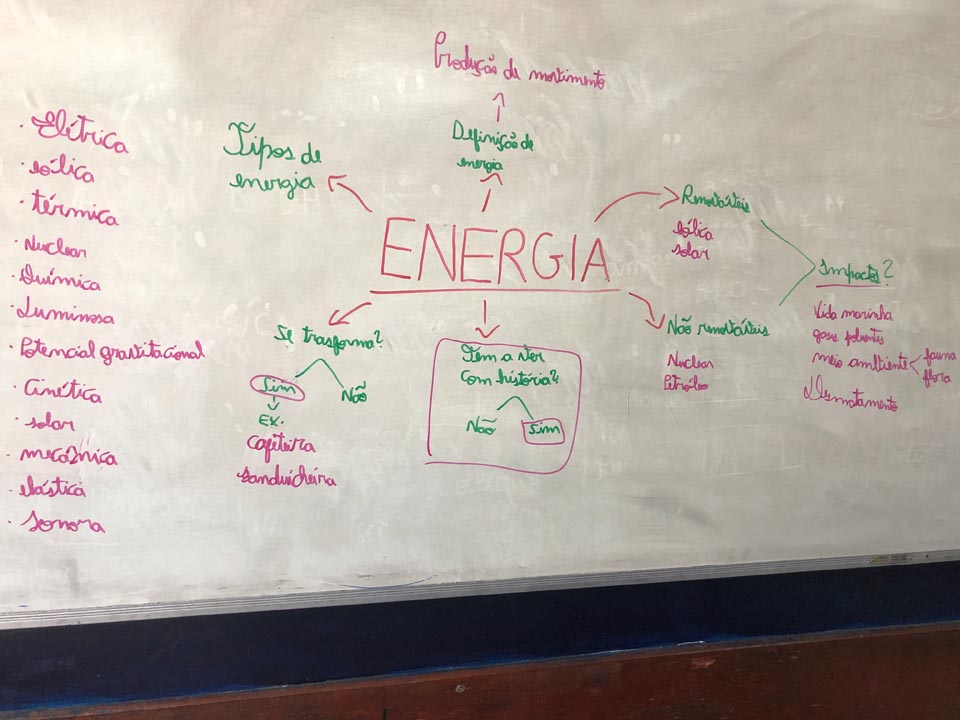 Produção de movimento
Definição de
energia
Tipos de
energia
· Elétrica
· eólica
· térmica
· Nuclear
· Química
· Luminosa
· Potencial gravitacional
· Cinética
· solar
· mecânica
· elástica
· Sonora
ENERGIA
Renováveis
eólica
solar
Não renováveis
Nuclear
Petróleo
Impactos?
Vida marinha
gase poluentes
meio ambiente
fauna
flora
Desmatamento
Se trasforma?
Sim
Não
Ex.
Cafeteira
sanduicheira
Tem a ver
com história?
Não
Sim